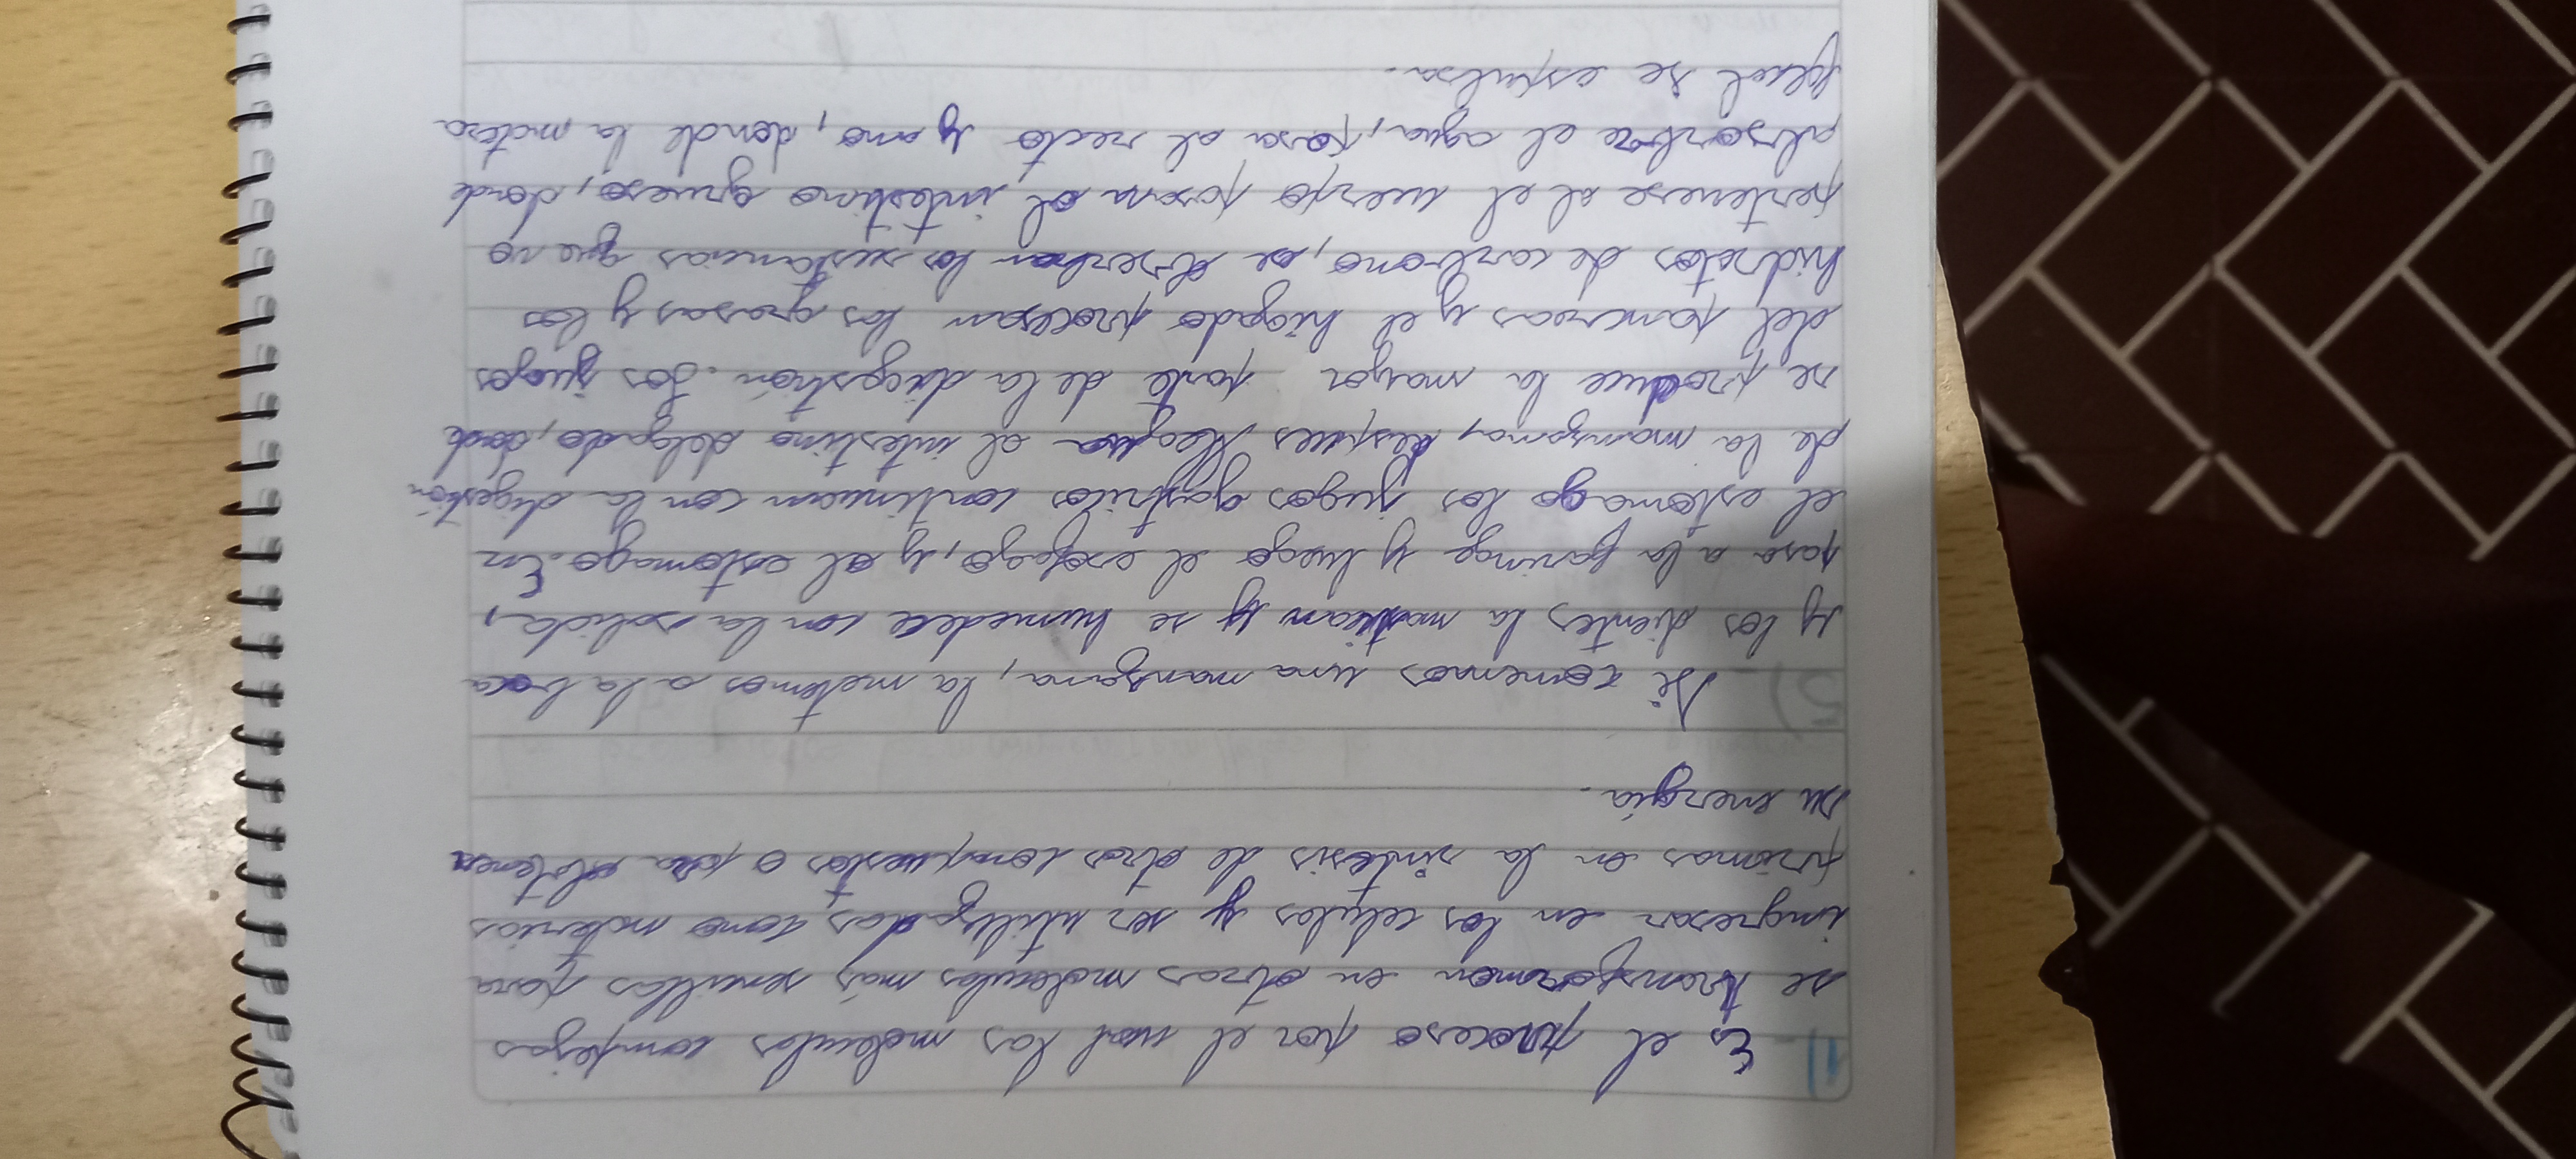 1)- Es el proceso por el cual las moleculas complejas
se transforman en otras moleculas más sencillas para
ingresar en las celulas y ser utilizadas como materias
primas en la sintesis de otros compuestos o para obtener
su energía.
5)- Si comemos una manzana, la metemos a la boca
y los dientes la mastican y se humedece con la saliva,
pasa a la faringe y luego el esofago, y al estomago. En
el estomago los jugos gastricos continuan con la digestión
de la manzana, despues llega al intestino delgado, donde
se produce la mayor parte de la diegestión. Los jugos
del pancreas y el higado procesan las grasas y los
hidratos de carbono, se absorben las sustancias que no
pertenese al el cuerpo pasan al intestino grueso, donde
absorbe el agua, pasa al recto y ano, donde la matera
fecal se espulsa.